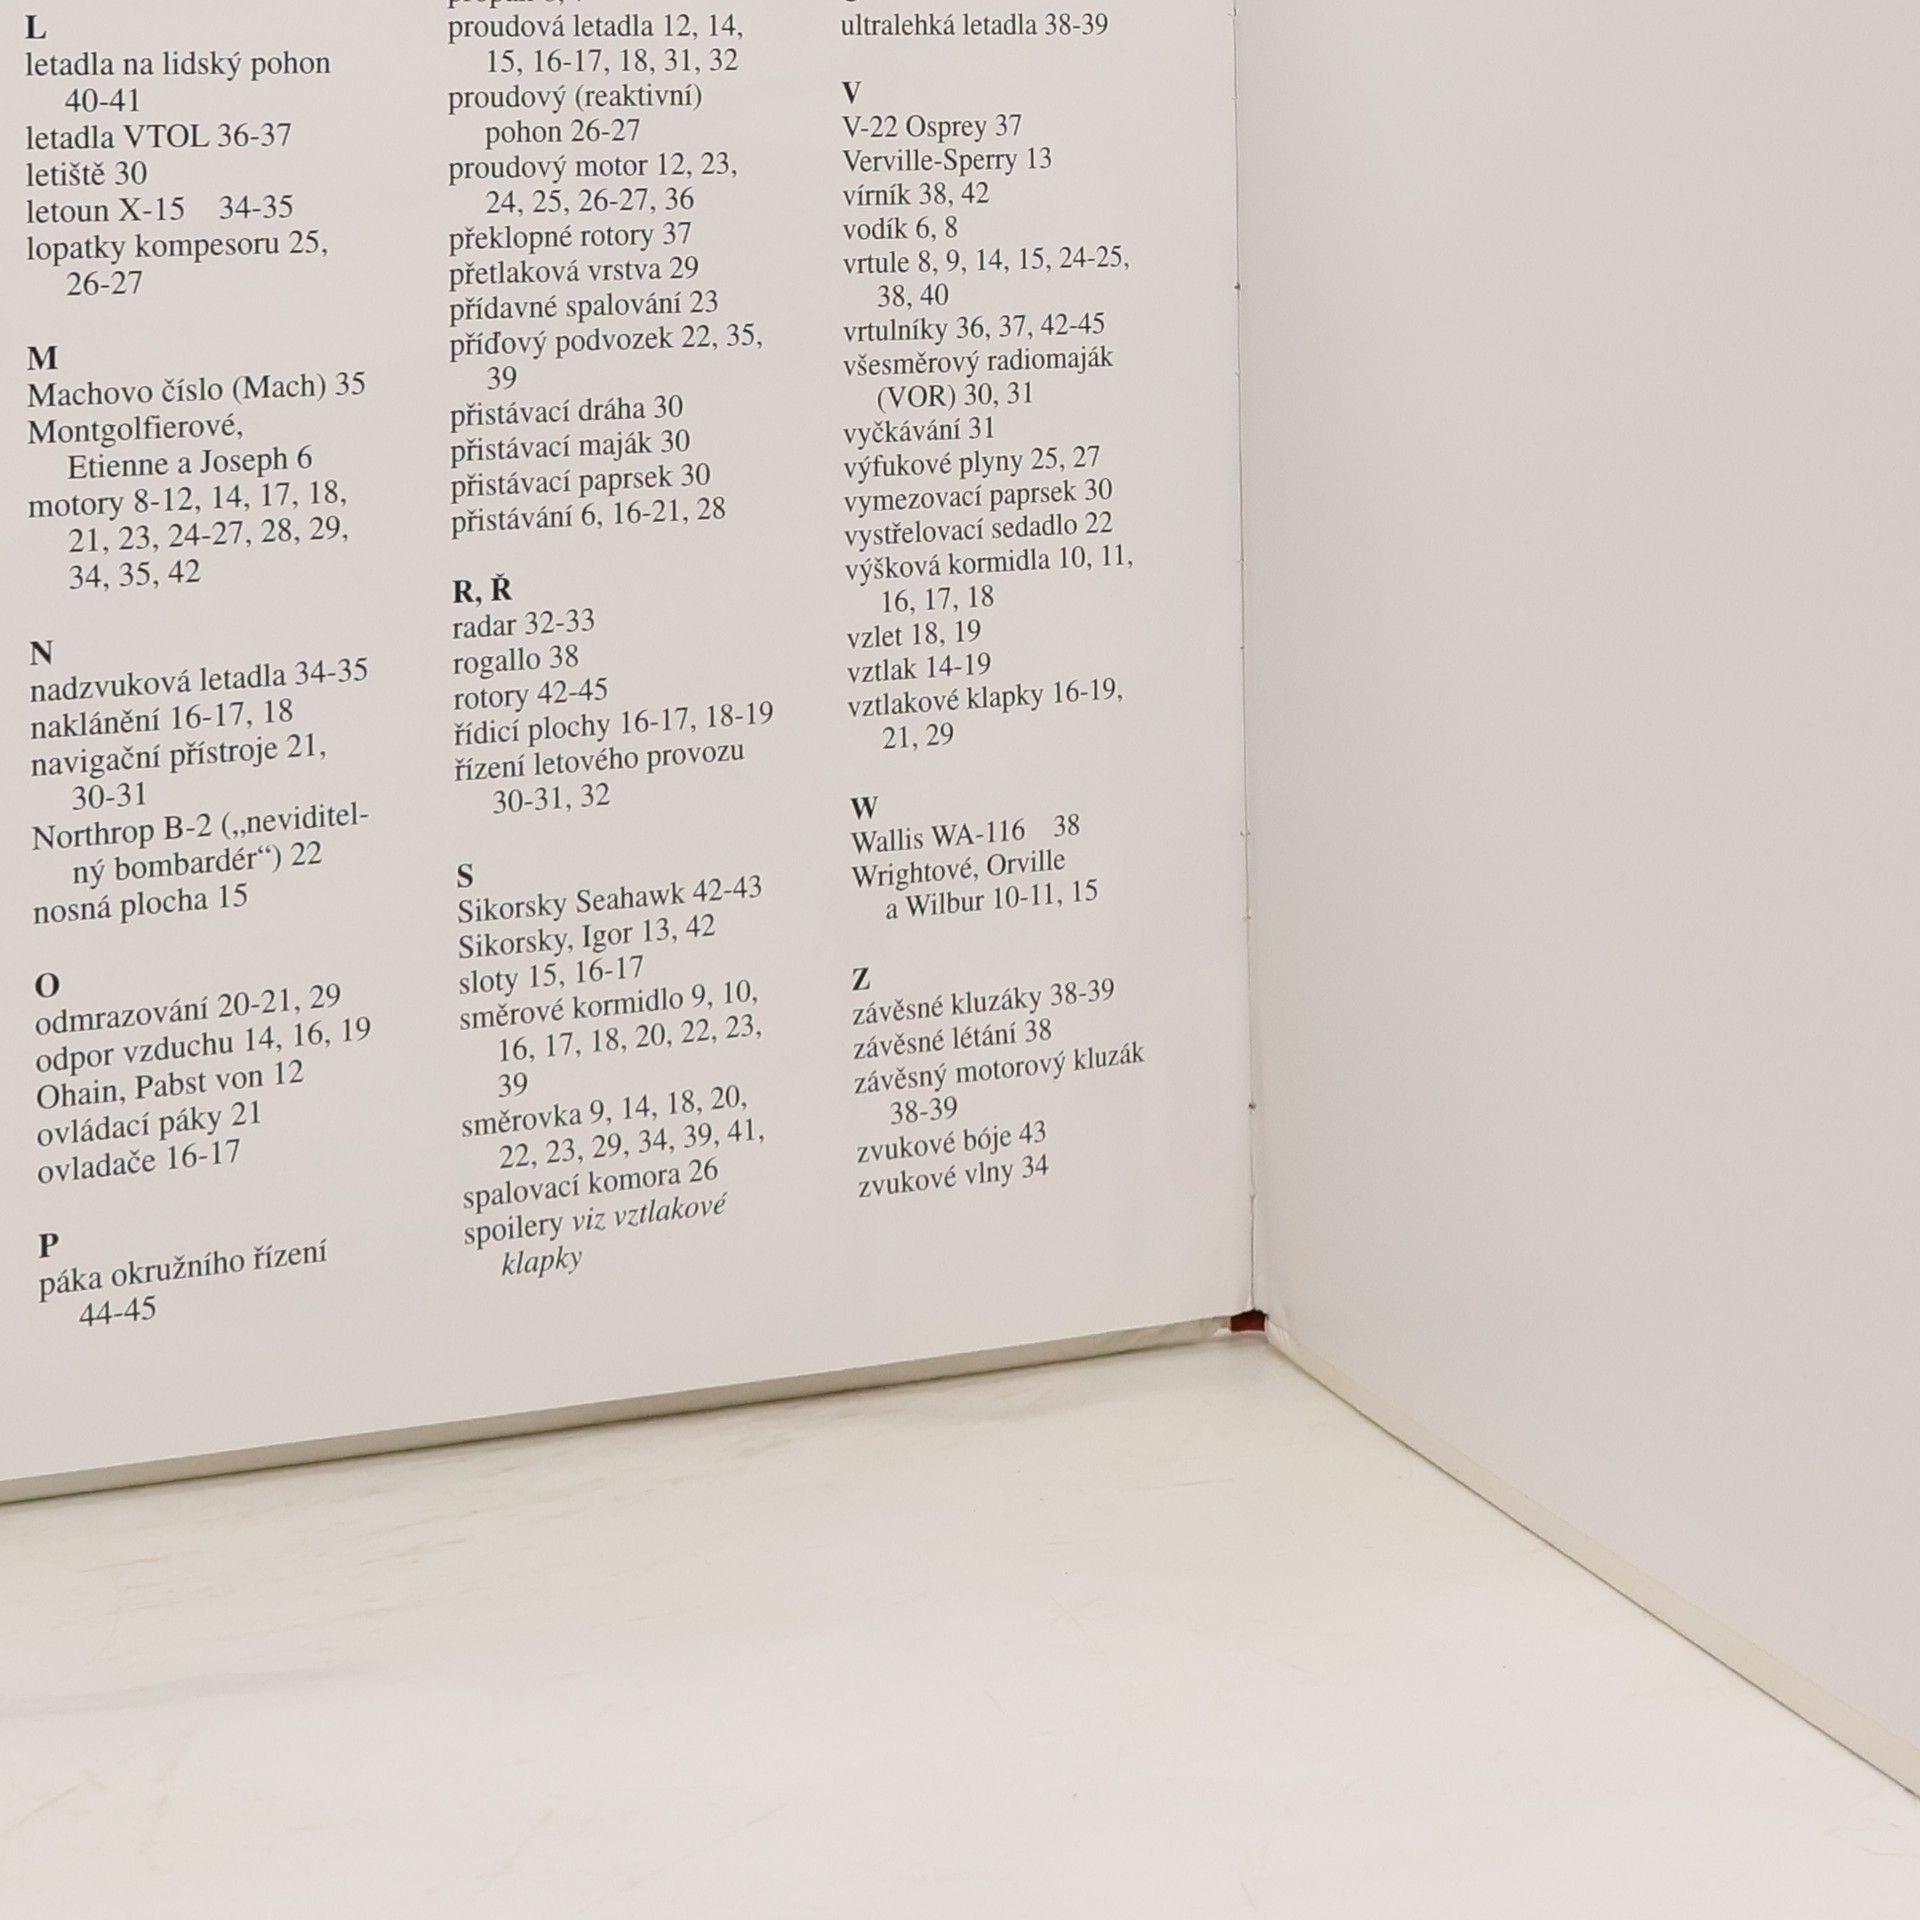 L
letadla na lidský pohon
40-41
letadla VTOL 36-37
letiště 30
letoun X-15 34-35
lopatky kompesoru 25,
26-27
M
Machovo číslo (Mach) 35
Montgolfierové,
Etienne a Joseph 6
motory 8-12, 14, 17, 18,
21, 23, 24-27, 28, 29,
34, 35, 42
N
nadzvuková letadla 34-35
naklánění 16-17, 18
navigační přístroje 21,
30-31
Northrop B-2 („neviditel-
ný bombardér“) 22
nosná plocha 15
O
odmrazování 20-21, 29
odpor vzduchu 14, 16, 19
Ohain, Pabst von 12
ovládací páky 21
ovladače 16-17
P
páka okružního řízení
44-45
proudová letadla 12, 14,
15, 16-17, 18, 31, 32
proudový (reaktivní)
pohon 26-27
proudový motor 12, 23,
24, 25, 26-27, 36
překlopné rotory 37
přetlaková vrstva 29
přídavné spalování 23
příďový podvozek 22, 35,
39
přistávací dráha 30
přistávací maják 30
přistávací paprsek 30
přistávání 6, 16-21, 28
R, Ř
radar 32-33
rogallo 38
rotory 42-45
řídicí plochy 16-17, 18-19
řízení letového provozu
30-31, 32
S
Sikorsky Seahawk 42-43
Sikorsky, Igor 13, 42
sloty 15, 16-17
směrové kormidlo 9, 10,
16, 17, 18, 20, 22, 23,
39
směrovka 9, 14, 18, 20,
22, 23, 29, 34, 39, 41,
spalovací komora 26
spoilery viz vztlakové
klapky
ultralehká letadla 38-39
V
V-22 Osprey 37
Verville-Sperry 13
vírník 38, 42
vodík 6, 8
vrtule 8, 9, 14, 15, 24-25,
38, 40
vrtulníky 36, 37, 42-45
všesměrový radiomaják
(VOR) 30, 31
vyčkávání 31
výfukové plyny 25, 27
vymezovací paprsek 30
vystřelovací sedadlo 22
výšková kormidla 10, 11,
16, 17, 18
vzlet 18, 19
vztlak 14-19
vztlakové klapky 16-19,
21, 29
W
Wallis WA-116 38
Wrightové, Orville
a Wilbur 10-11, 15
Z
závěsné kluzáky 38-39
závěsné létání 38
závěsný motorový kluzák
38-39
zvukové bóje 43
zvukové vlny 34